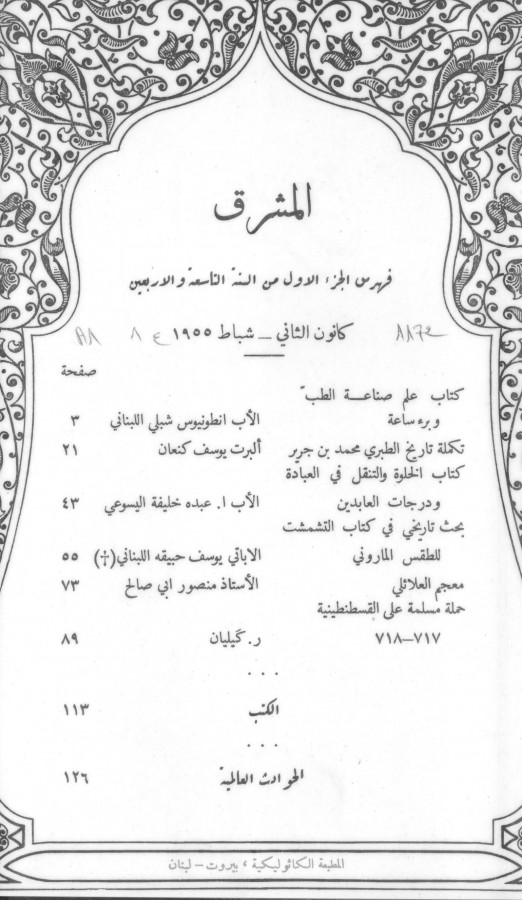 المشرق
فهرس الجزء الاول من السنة التاسعة والاربعين
كانون الثاني – شباط ١٩٥٥
صفحة
كتاب علم صناعة الطبّ
وبرء ساعة الأب انطونيوس شبلي اللبناني ٣
تكملة تاريخ الطبري محمد بن جرير ألبرت يوسف كنعان ٢١
كتاب الخلوة والتنقل في العبادة
ودرجات العابدين الأب ا. عبده خليفة اليسوعي ٤٣
بحث تاريخي في كتاب التشمشت
للطقس الماروني الاباتي يوسف حبيقه اللبناني (†) ٥٥
معجم العلائلي الأستاذ منصور ابي صالح ٧٣
حملة مسلمة على القسطنطينية
٧١٧–٧١٨ ر. كيليان ٨٩
...
الكتب ١١٣
...
الحوادث العالمية ١٢٦
المطبعة الكاثوليكية ، بيروت – لبنان